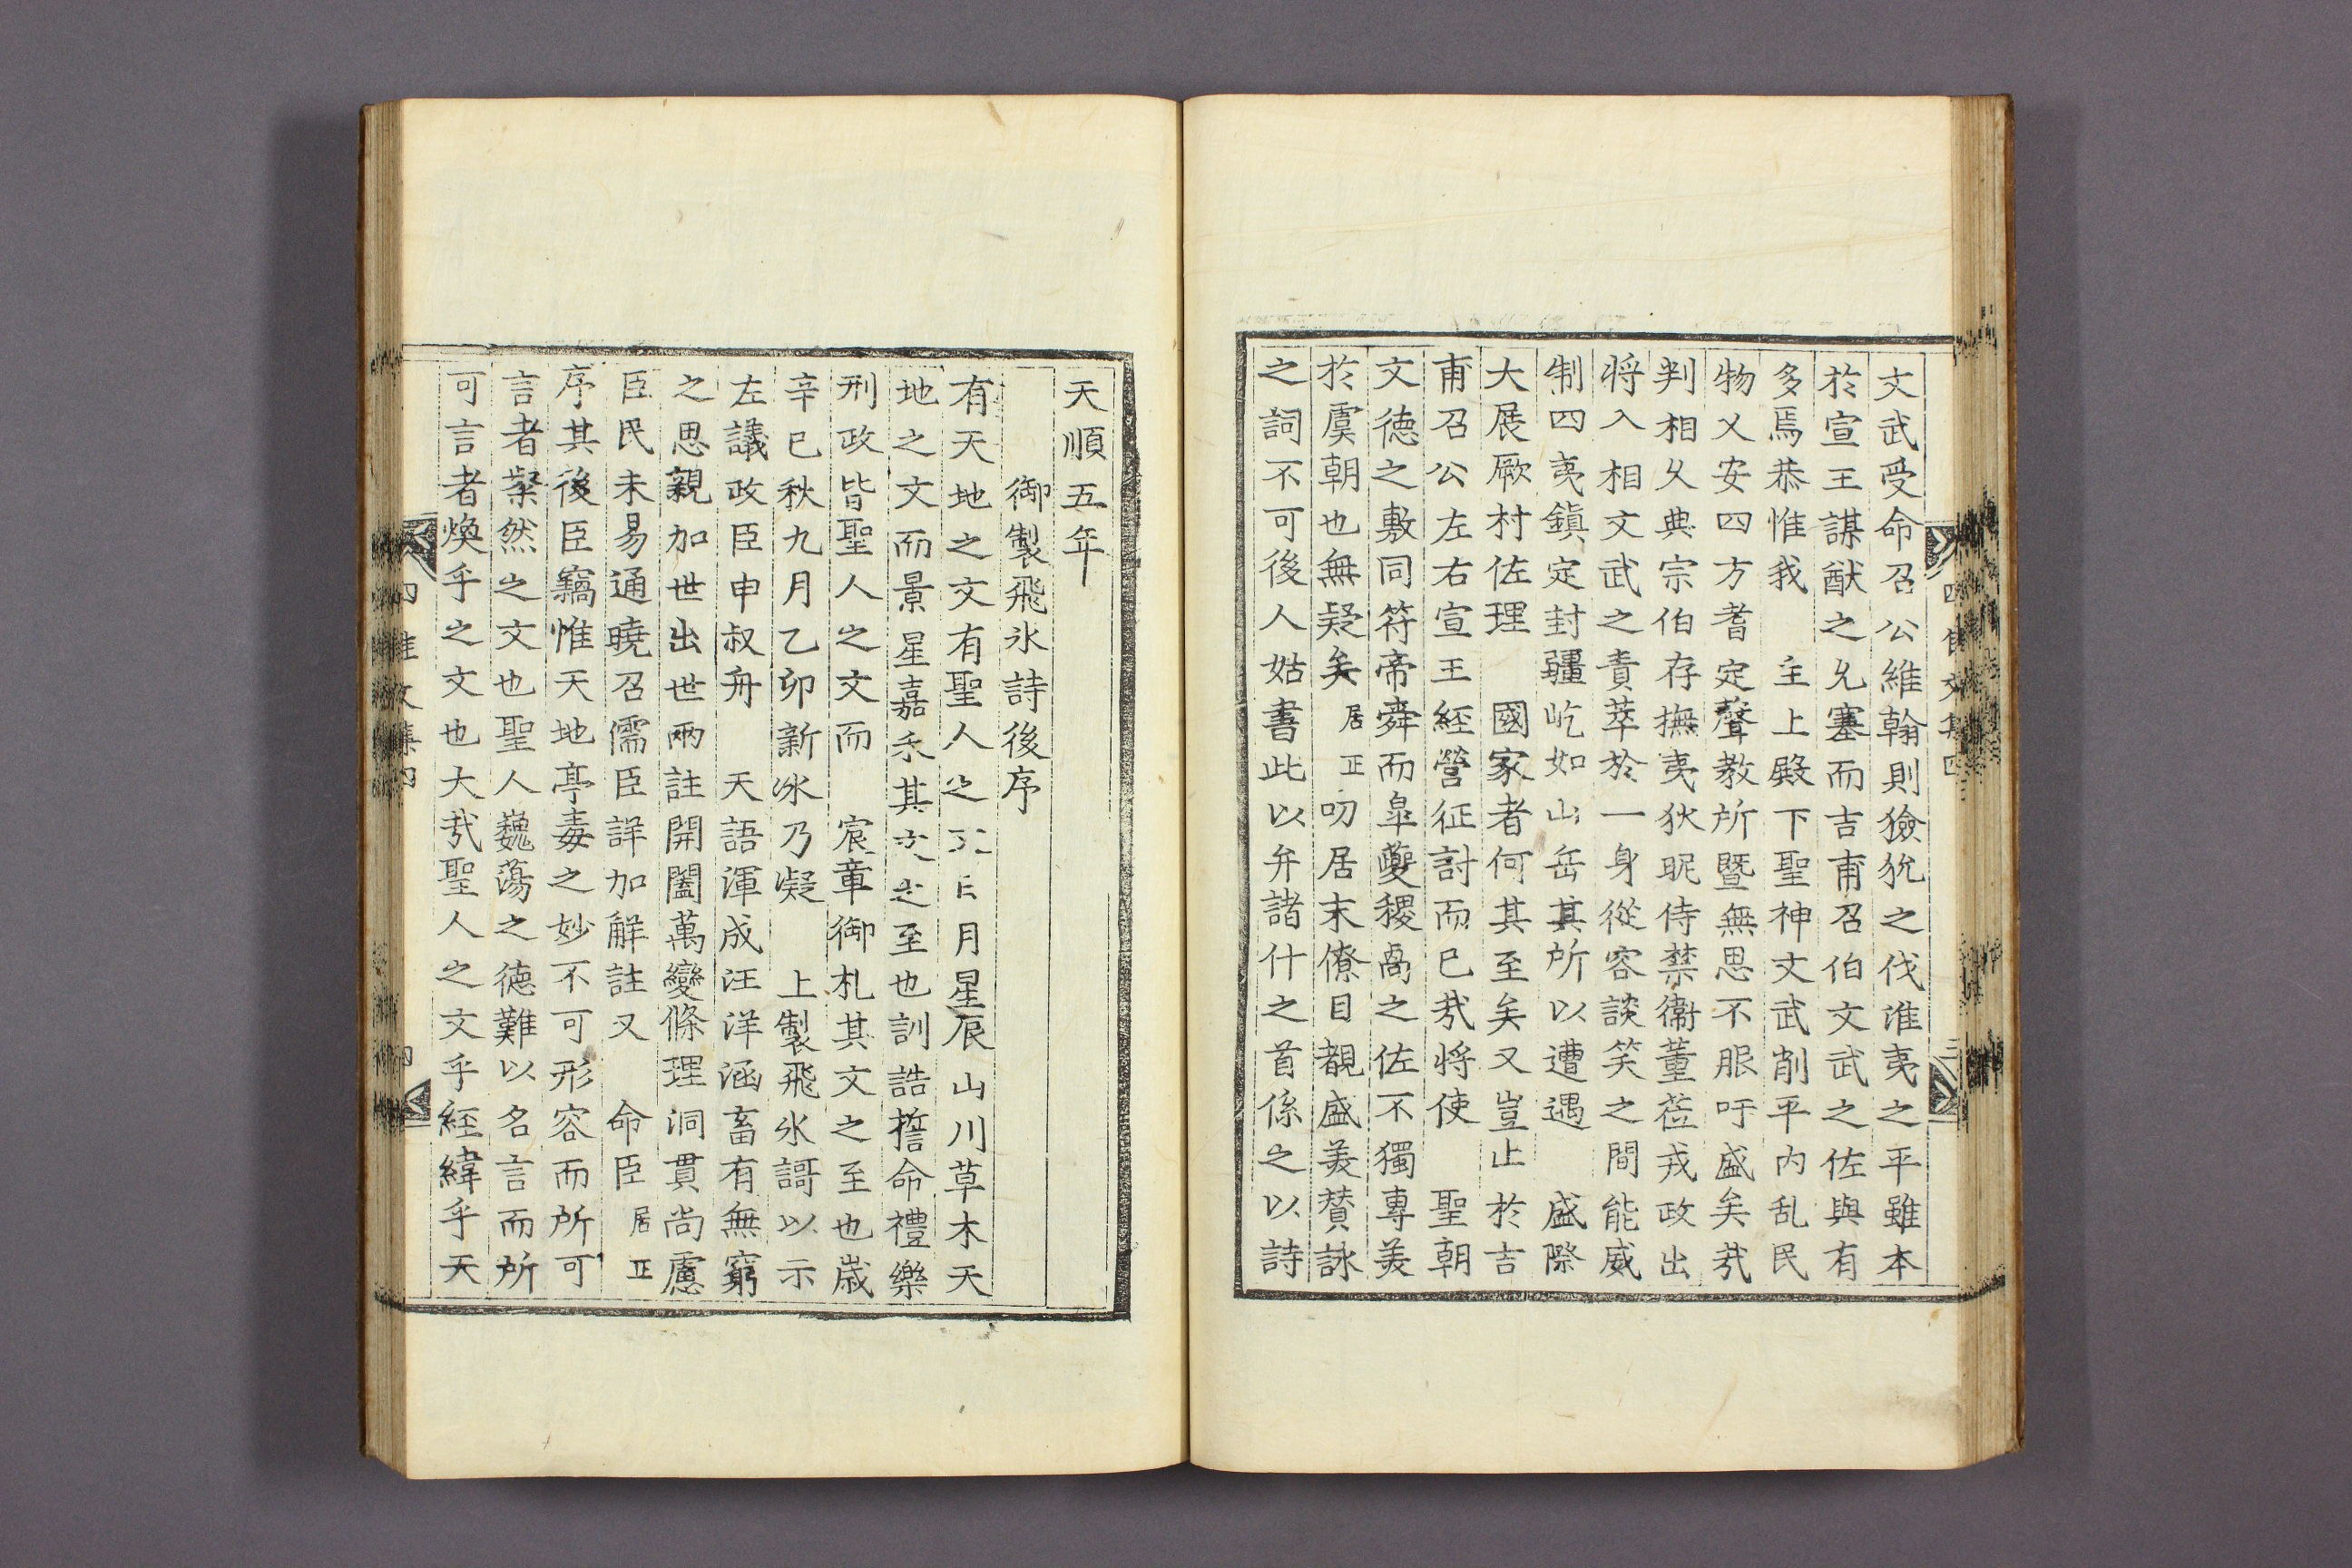 文武受命召公維翰則獫狁之伐淮夷之平雖本
於宣王謀猷之允塞而吉甫召伯文武之佐與有
多焉恭惟我　主上殿下聖神文武削平內乱民
物乂安四方耆定聲教所曁無思不服吁盛矣㢤
判相久典宗伯存撫夷狄昵侍禁衛董莅戎政出
将入相文武之責萃於一身從容談笑之間能威
制四夷鎭定封疆屹如山岳其所以遭遇　盛際
大展厥材佐理　國家者何其至矣又豈止於吉
甫召公左右宣王経營征討而已㢤将使　聖朝
文德之敷同符帝舜而臯夔稷卨之佐不獨專美
於虞朝也無疑矣居正叨居末僚目覩盛美賛詠
之詞不可後人姑書此以弁諸什之首係之以詩
四佳文集四
三
天順五年
御製飛氷詩後序
有天地之文有聖人之文日月星辰山川草木天
地之文而景星嘉禾其文之至也訓誥誓命禮樂
刑政皆聖人之文而　宸章御札其文之至也歳
辛巳秋九月乙卯新氷乃凝　上製飛氷謌以示
左議政臣申叔舟　天語渾成汪洋涵畜有無窮
之思親加世出世兩註開闔萬變條理洞貫尚慮
臣民未易通曉召儒臣詳加解註又　命臣居正
序其後臣竊惟天地亭毒之妙不可形容而所可
言者粲然之文也聖人巍蕩之德難以名言而所
可言者煥乎之文也大㢤聖人之文乎経緯乎天
四佳文集四
四